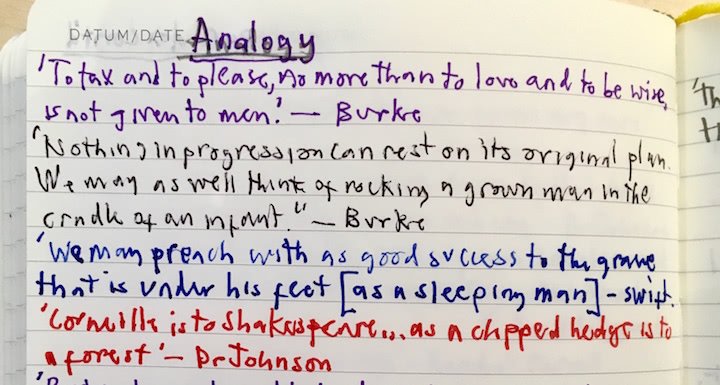 DATUM/DATE Analogy
'To tax and to please, no more than to love and to be wise,
is not given to men.' — Burke
"Nothing in progression can rest on its original plan.
We may as well think of rocking a grown man in the
cradle of an infant." — Burke
'We may preach with as good success to the grave
that is under his feet [as a sleeping man] - Swift.
'Corneille is to Shakespeare... as a clipped hedge is to
a forest' — Dr Johnson
'th